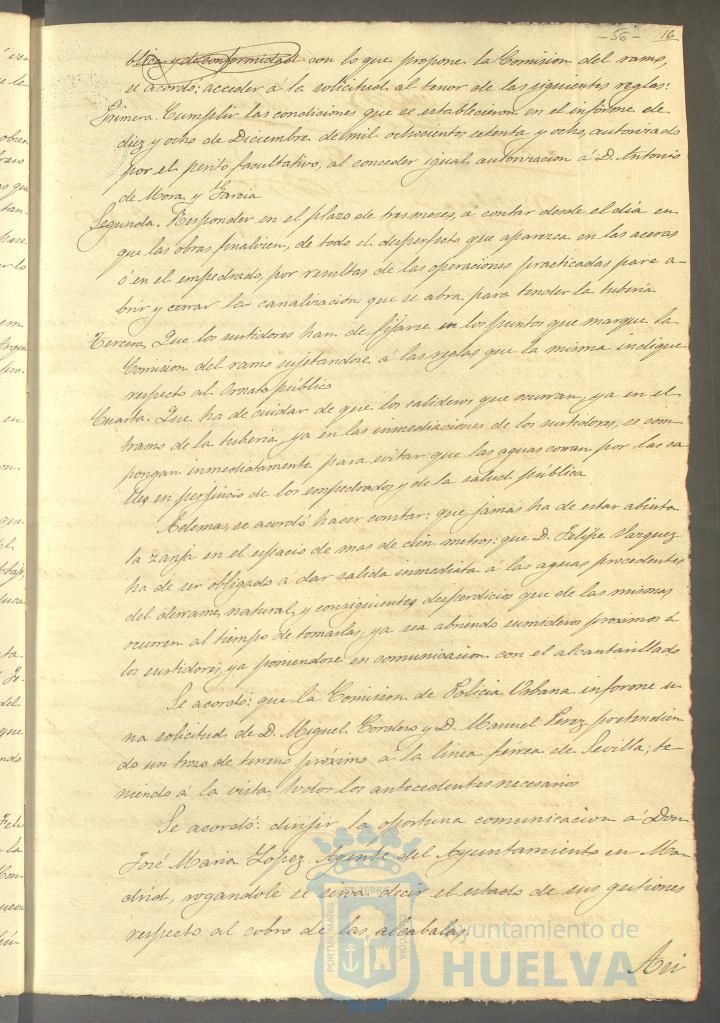 -56- 16
blica y de conformidad con lo que propone la Comision del ramo,
se acordó: acceder á la solicitud al tenor de las siguientes reglas:
Primera. Cumplir las condiciones que se establecieron en el informe de
diez y ocho de Diciembre de mil ochocientos setenta y ocho, autorizado
por el perito facultativo, al conceder igual autorizacion á D. Antonio
de Mora y Garcia
Segunda. Responder en el plazo de tres meses, á contar desde el dia en
que las obras finalicen, de todo el desperfecto que aparezca en las aceras
ó en el empedrado, por resultas de las operaciones practicadas para a-
brir y cerrar la canalizacion que se abra para tender la tuberia
Tercera. Que los surtidores han de fijarse en los puntos que marque la
Comision del ramo sujetandose á las reglas que la misma indique
respecto al Ornato público
Cuarta. Que ha de cuidar de que los salideros que ocurran, ya en el
tramo de la tuberia, ya en las inmediaciones de los surtidores, se com-
pongan inmediatamente para evitar que las aguas corran por las ca-
lles en perjuicio de los empedrados y de la salud pública
Ademas, se acordó hacer constar: que jamas ha de estar abierta
la zanja en el espacio de mas de cien metros: que D. Felipe Vazquez
ha de ser obligado á dar salida inmediata á las aguas procedentes
del derrame natural, y consiguientes desperdicios que de las mismas
ocurren al tiempo de tomarlas, ya sea abriendo sumideros proximos á
los surtidores, ya poniendose en comunicacion con el alcantarillado
Se acordó: que la Comision de Policia Urbana informe u-
na solicitud de D. Miguel Cordero y D. Manuel Perez pretendien
do un trozo de terreno próximo á la linea ferrea de Sevilla; te-
niendo á la vista todos los antecedentes necesarios
Se acordó: dirijir la oportuna comunicacion á Don
José Maria Lopez Agente del Ayuntamiento en Ma-
drid, rogandole se sirva decir el estado de sus gestiones
respecto al cobro de las alcabalas,
Ayuntamiento de
HUELVA
PORTUS MARIS